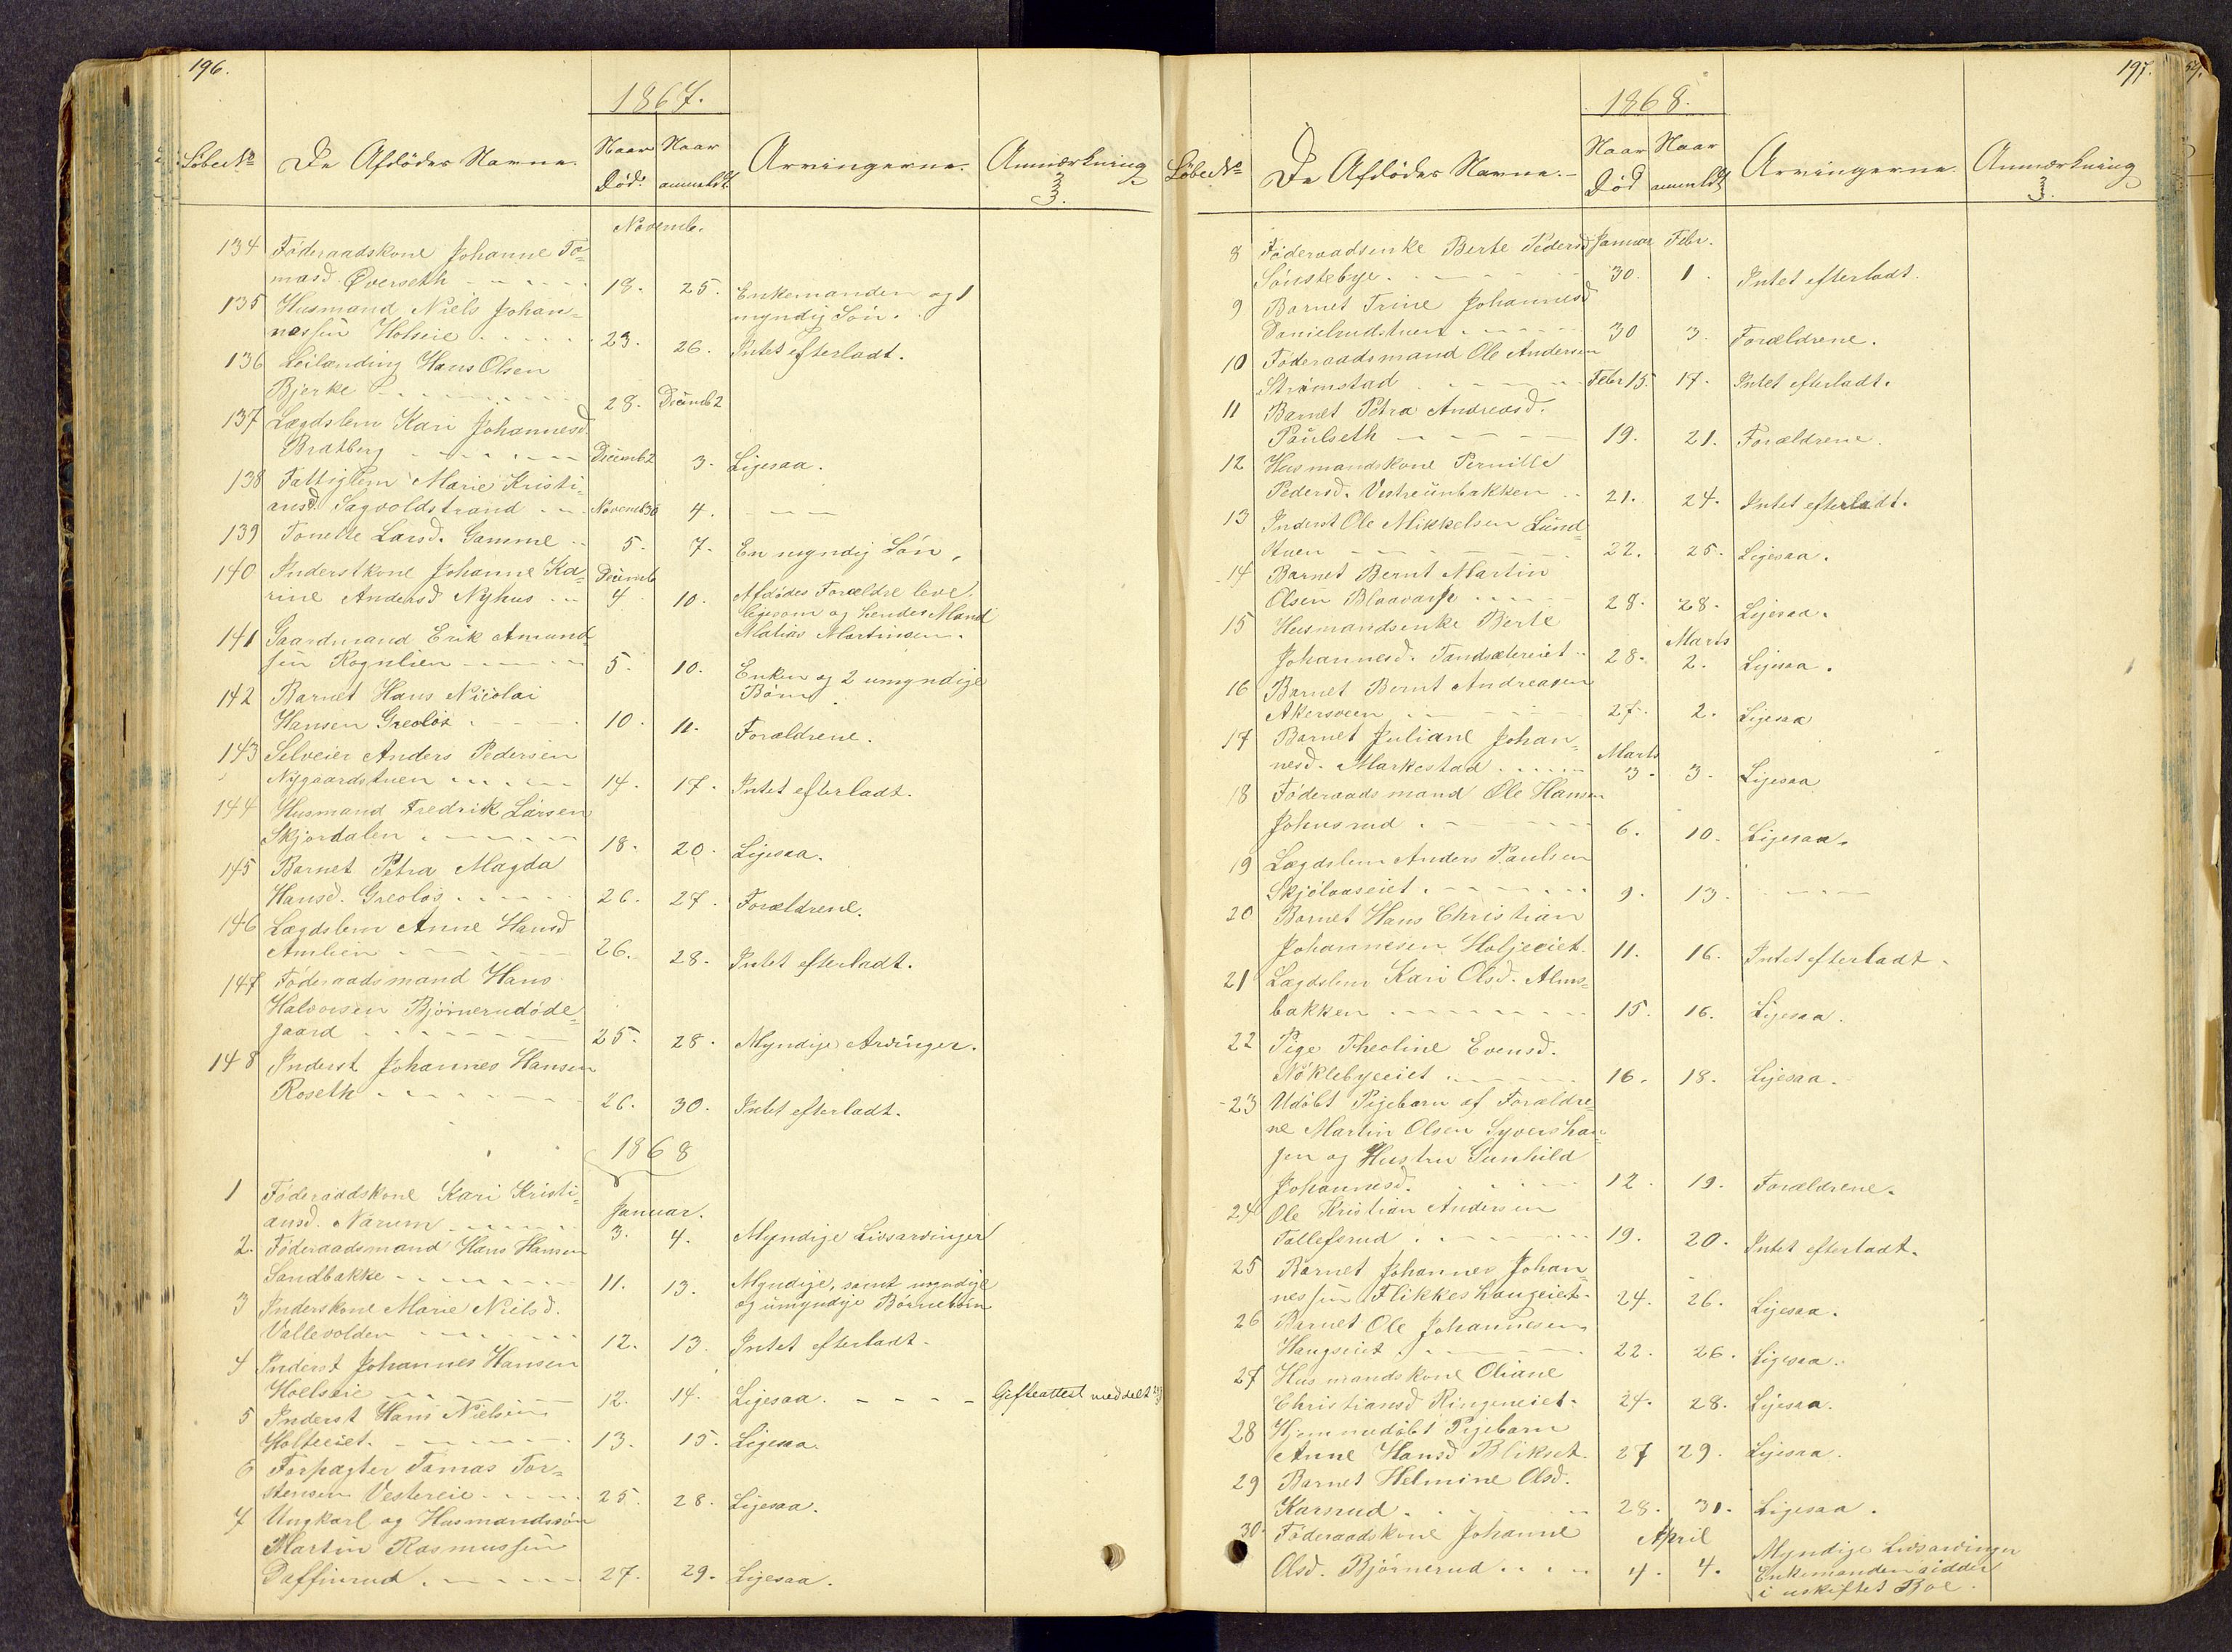 196.
1867.
Löbe№ De Afdödes Navne. Naar Död. Naar anmeldt. Arvingerne. Anmærkning
Novemb.
134 Föderaadskone Johanne To=
masd Øverseth 18. 25. Enkemanden og 1
myndig Sön.
135 Husmand Niels Johan=
nessen Holseie 23. 26. Intet efterladt.
136 Leilænding Hans Olsen
Bjerke 28. Decemb 2
137 Lægdslem Kari Johannesd.
Bratberg Decemb 2 3. Ligesaa.
138 Fattiglem Marie Kristi=
ansd. Sagvoldstrand Novemb 30 4.
139 Tonette Larsd. Gamme 5. 7. En myndig Sön.
140 Inderstkone Johanne Ka=
rine Andersd Nyhus Decemb 4 10. Afdödes Forældre leve,
ligesom og hendes Mand
Matias Martinsen.
141 Gaardmand Erik Amund
sen Rognlien 5. 10. Enken og 2 umyndige
Börn.
142 Barnet Hans Nicolai
Hansen Greolös 10. 11. Forældrene.
143 Selveier Anders Pedersen
Nygaardstuen 14. 17. Intet efterladt.
144 Husmand Fredrik Larsen
Skjordalen 18. 20. Ligesaa.
145 Barnet Petra Magda
Hansd. Greolös 26. 27. Forældrene.
146 Lægdslem Anne Hansd
Amlien 26. 28. Intet efterladt.
147 Föderaadsmand Hans
Halvorsen Björnerudöde=
gaard 25. 28. Myndige Arvinger.
148 Inderst Johannes Hansen
Roseth 26. 30. Intet efterladt.
1868
1 Föderaadskone Kari Kristi=
ansd. Narum Januar. 3. 4. Myndige Livsarvinger
2. Föderaadsmand Hans Hansen
Sandbakke 11. 13. Myndige, samt myndige
og umyndige Börnebörn
3 Inderskone Marie Nielsd.
Vallevolden 12. 13. Intet efterladt.
4 Inderst Johannes Hansen
Hoelseie 12. 14. Ligesaa. Gifteattest meddelt
5 Inderst Hans Nielsen
Holteeiet. 13. 15. Ligesaa.
6 Forpagter Tomas Tor=
stensen Vestereie 25. 28. Ligesaa.
7 Ungkarl og Husmandssön
Martin Rasmussen
Daffinrud 27. 29. Ligesaa.
197.
1868.
Löbe№ De Afdödes Navne. Naar Död Naar anmeldt Arvingerne. Anmærkning
8 Föderaadsenke Berte Pedersd Januar Febr.
Sönstebye 30. 1. Intet efterladt.
9 Barnet Trine Johannesd
Danielrudstuen 30 3. Forældrene.
10 Föderaadsmand Ole Andersen
Strömstad Febr 15. 17. Intet efterladt.
11 Barnet Petra Andreasd.
Paulseth 19. 21. Forældrene.
12 Husmandskone Pernille
Pedersd. Vestreünbakken 21. 24. Intet efterladt.
13 Inderst Ole Mikkelsen Lund
stuen 22. 25. Ligesaa.
14 Barnet Bernt Martin
Olsen Blaavarp 28. 28. Ligesaa.
15 Husmandsenke Berte
Johannesd. Tandsætereiet 28. Marts 2. Ligesaa.
16 Barnet Bernt Andreasen
Akersveen 27. 2. Ligesaa
17 Barnet Juliane Johan=
nesd. Markestad Marts 3. 3. Ligesaa
18 Föderaadsmand Ole Hansen
Johnsrud 6. 10. Ligesaa.
19 Lægdslem Anders Paulsen
Skjölaaseiet 9. 13.
20 Barnet Hans Christian
Johannesen Holjeeiet 11. 16. Intet efterladt.
21 Lægdslem Kari Olsd. Alms=
bakken 15. 16. Ligesaa.
22 Pige Theoline Evensd.
Nöklebyeeiet 16. 18. Ligesaa.
23 Udöbt Pigebarn af Forældre=
ne Martin Olsen Syvershau=
gen og Hustru Gunhild
Johannesd. 12. 19. Forældrene.
24 Ole Kristian Andersen
Tollefsrud 19. 20. Intet efterladt.
25 Barnet Johannes Johan=
nessen Flikkeshaugeiet 24. 26. Ligesaa.
26 Barnet Ole Johannesen
Haugseiet 22. 26. Ligesaa.
27 Husmandskone Oliane
Christiansd Ringeneiet 24. 28. Ligesaa.
28 Hjemmedöbt Pigebarn
Anne Hansd Blikset 27 29. Ligesaa.
29 Barnet Helmine Olsd.
Karsrud 28. 31. Ligesaa.
30. Föderaadskone Johanne April
Olsd. Björnerud 4. 4. Myndige Livsarvinger
Enkemanden sidder
i uskiftet Boe.